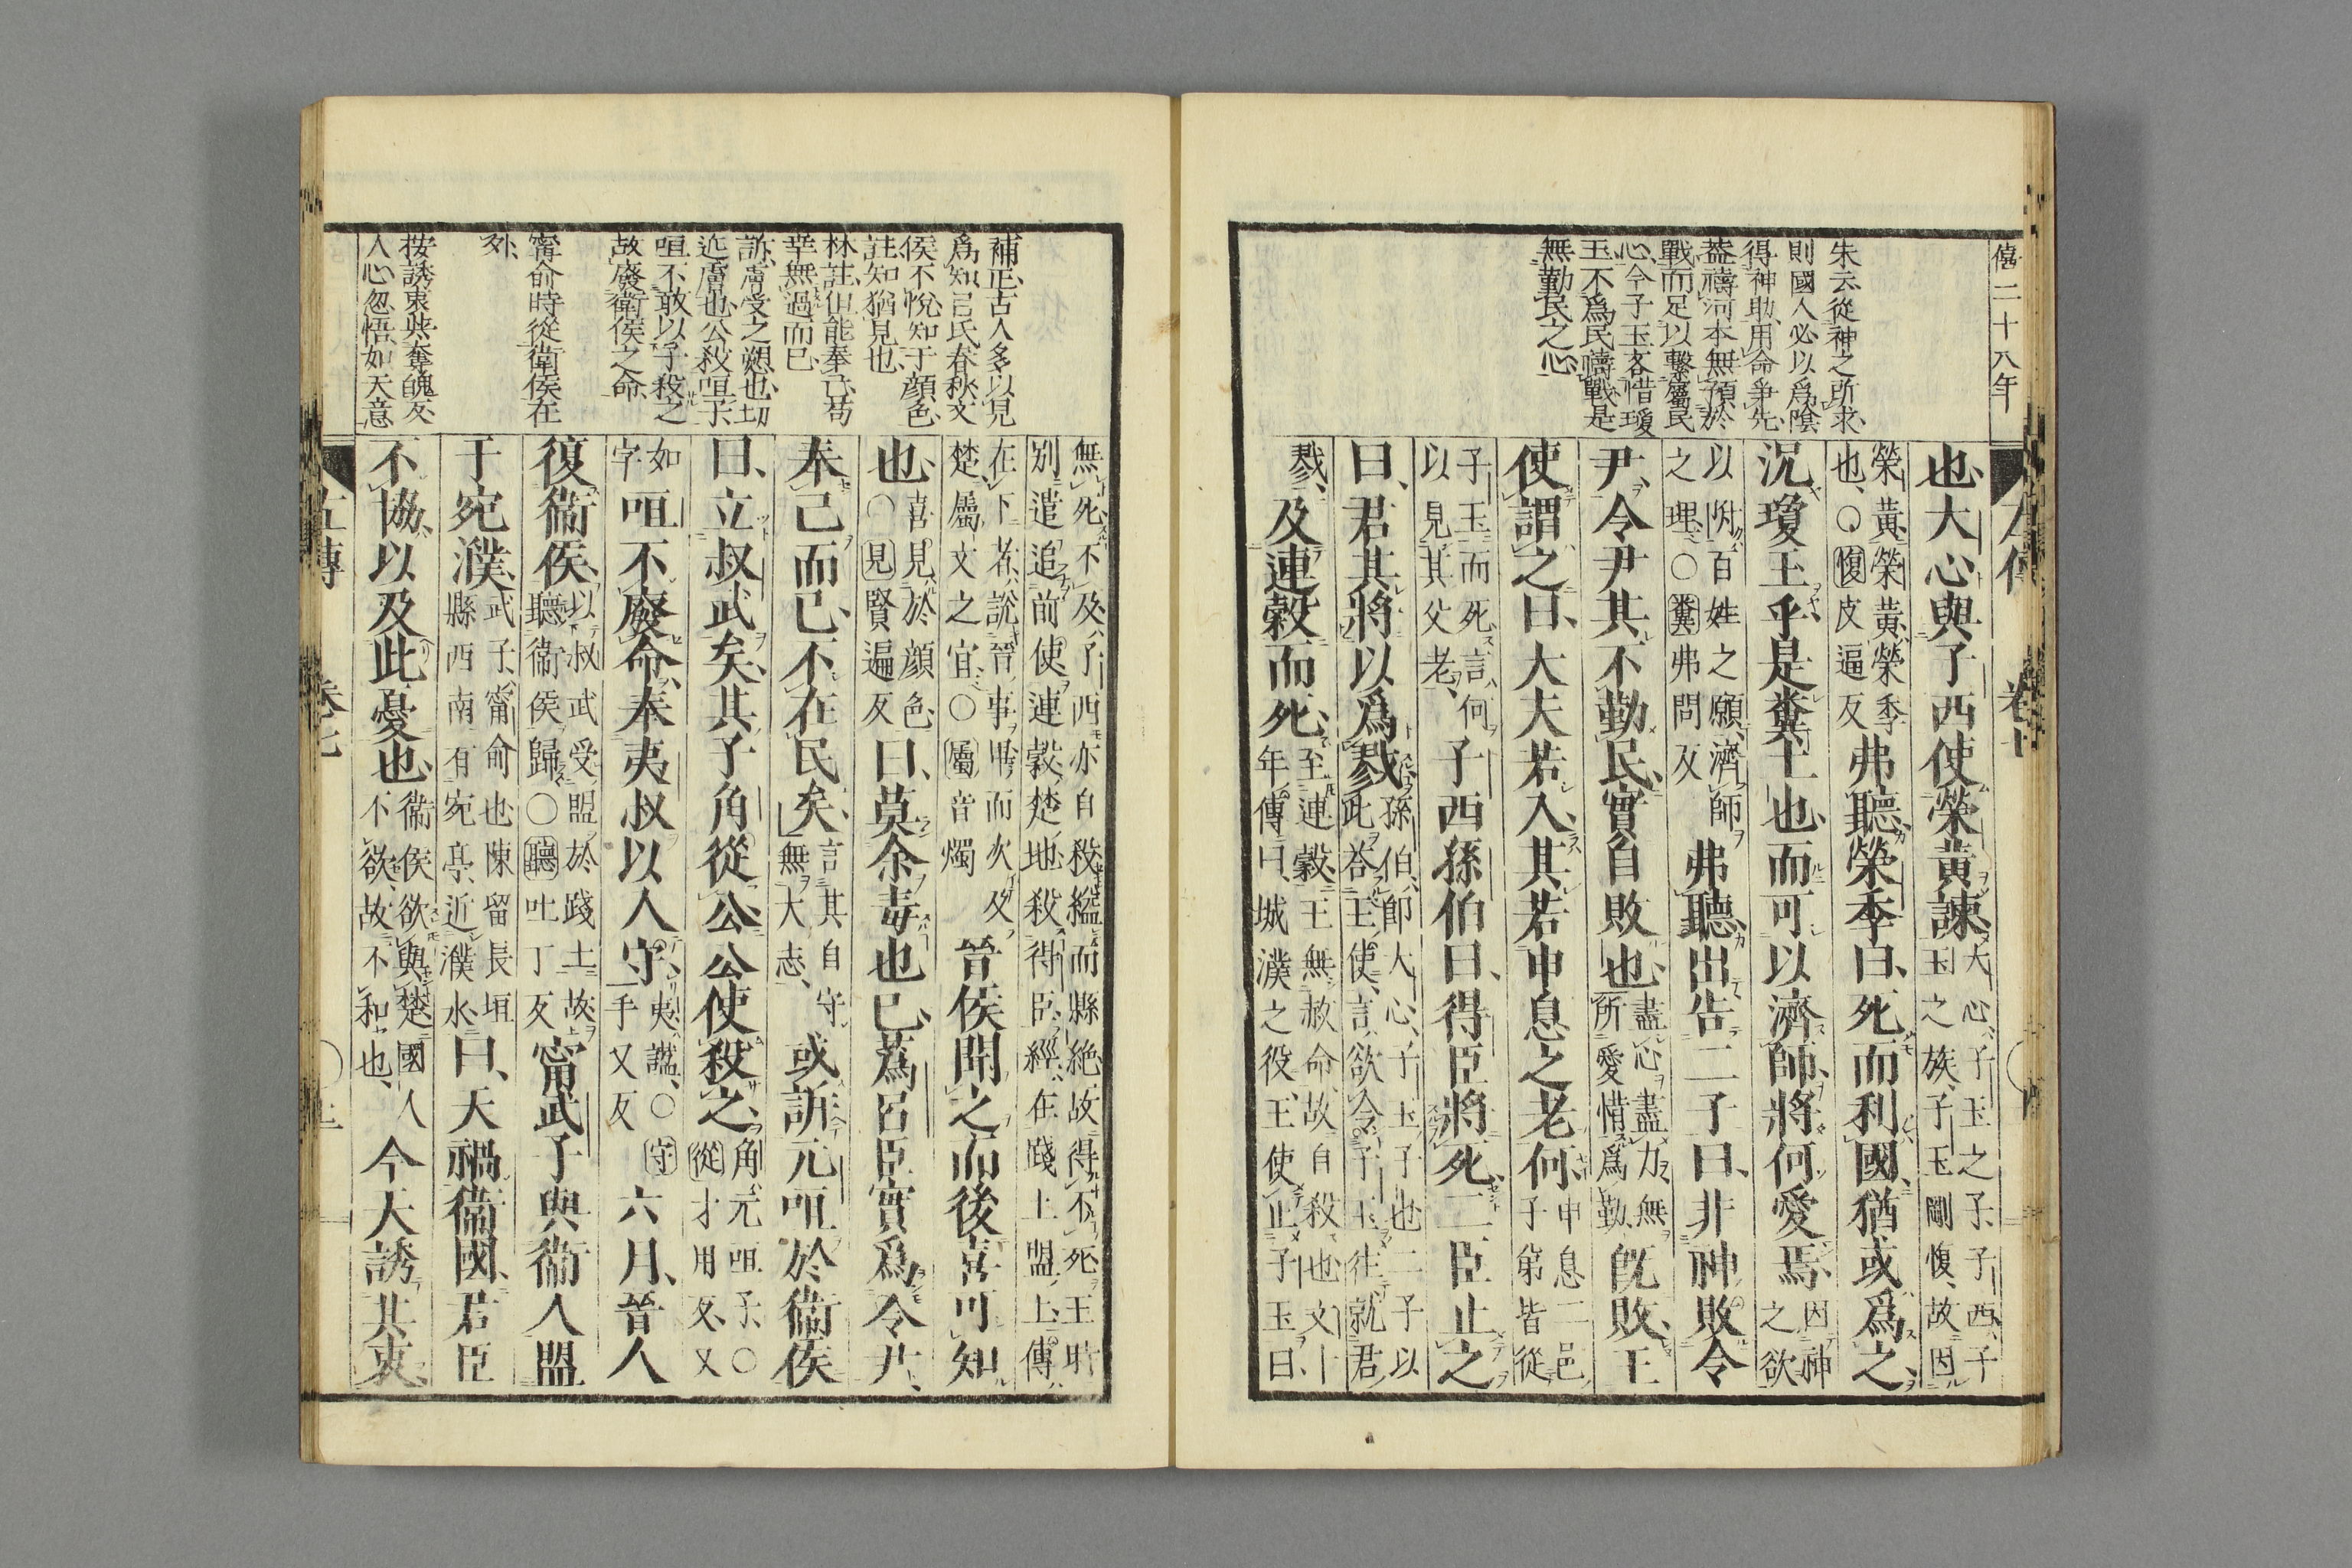 僖二十八年
左傳
朱云、從神之所求、
則國人必以爲陰
得神助、用命爭先、
蓋禱河本無預於
戰、而足以繫屬民
心、今子玉吝惜瓊
玉、不爲民禱戰、是
無勤民之心、
也、大心與子西使榮黃諫大心、子玉之子、子西、子玉之族、子玉剛愎、故因
榮黃、榮黃、榮季也、○愎皮逼反弗聽、榮季曰、死而利國、猶或爲之、
況瓊玉乎、是糞土也、而可以濟師、將何愛焉、因神之欲
以附百姓之願、濟師之理、○糞弗問反弗聽、出告二子曰、非神敗令
尹、令尹其不勤民、實自敗也、盡心盡力、無所愛惜爲勤、既敗、王
使謂之曰、大夫若入、其若申息之老何、申息二邑子弟皆從
子玉而死、言何以見其父老、子西孫伯曰、得臣將死、二臣止之
曰、君其將以爲戮、孫伯、卽大心、子玉子也二子以此荅王使、言欲令子玉往就君
戮、及連穀而死、至連穀、王無赦命、故自殺也文十年傳曰、城濮之役、王使止子玉曰、
補正、古人多以見
爲知、呂氏春秋、文
侯不悅、知于顏色、
註、知猶見也、
林註、但能奉己、苟
幸無過而已、
訴、膚受之愬也、切
近膚也、公殺咺子、
咺不敢以子殺之
故、廢衞侯之命、
甯俞時從衞侯在
外、
按誘衷與奪魄反
人心忽悟、如天意
無死、不及、子西亦自殺、縊而縣絕、故得不死、王時別遣追前使、連穀、楚地、殺得臣、經在踐土盟上、傳
在下者、說晉事畢而次及楚、屬文之宜、○屬音燭晉侯聞之而後喜可知
也、喜見於顏色、○見賢遍反曰、莫余毒也已、蔿呂臣實爲令尹、
奉己而已、不在民矣、言其自守無大志、或訴元咺於衞侯
曰、立叔武矣、其子角從公、公使殺之、角、元咺子、○從才用反、又
如字咺不廢命、奉夷叔以入守、夷、謚、○守手又反六月、晉人
復衞侯、以叔武受盟於踐土、故聽衞侯歸、○聽吐丁反甯武子與衞人盟
于宛濮、武子、甯俞也陳留長垣縣西南有宛亭、近濮水、曰、天禍衞國、君臣
不協、以及此憂也、衞侯欲與楚、國人不欲、故不和也、今天誘其衷、
左傳 卷七